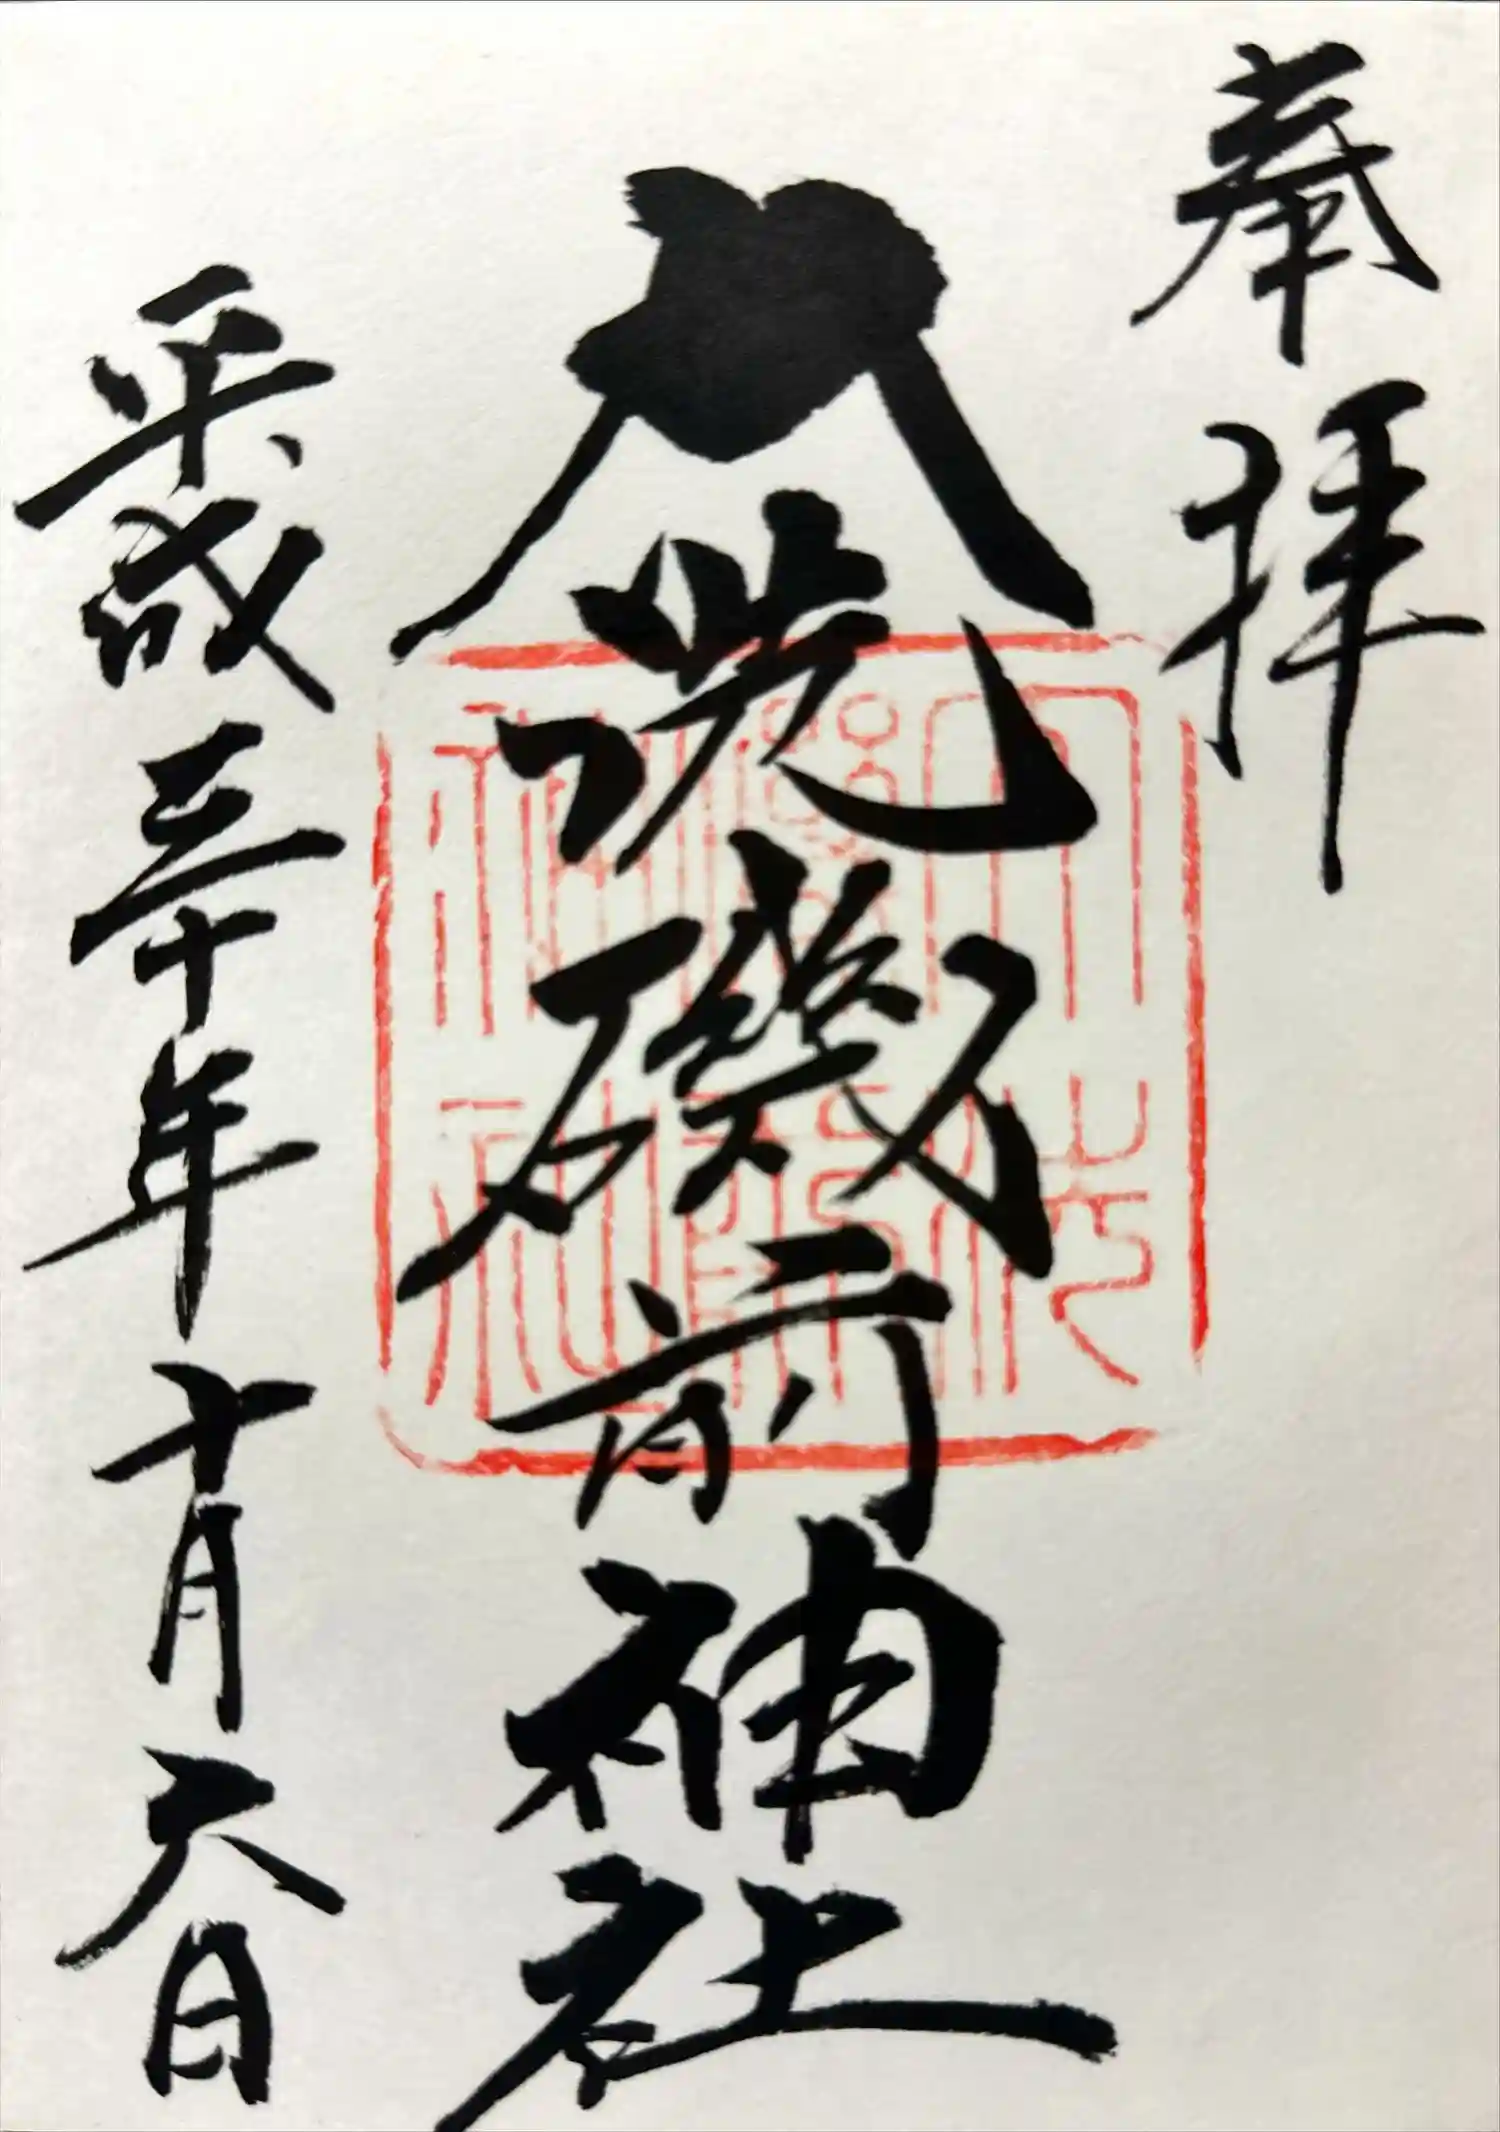 奉拝
大洗磯前神社
平成三十年十月六日
大洗
磯前
神社